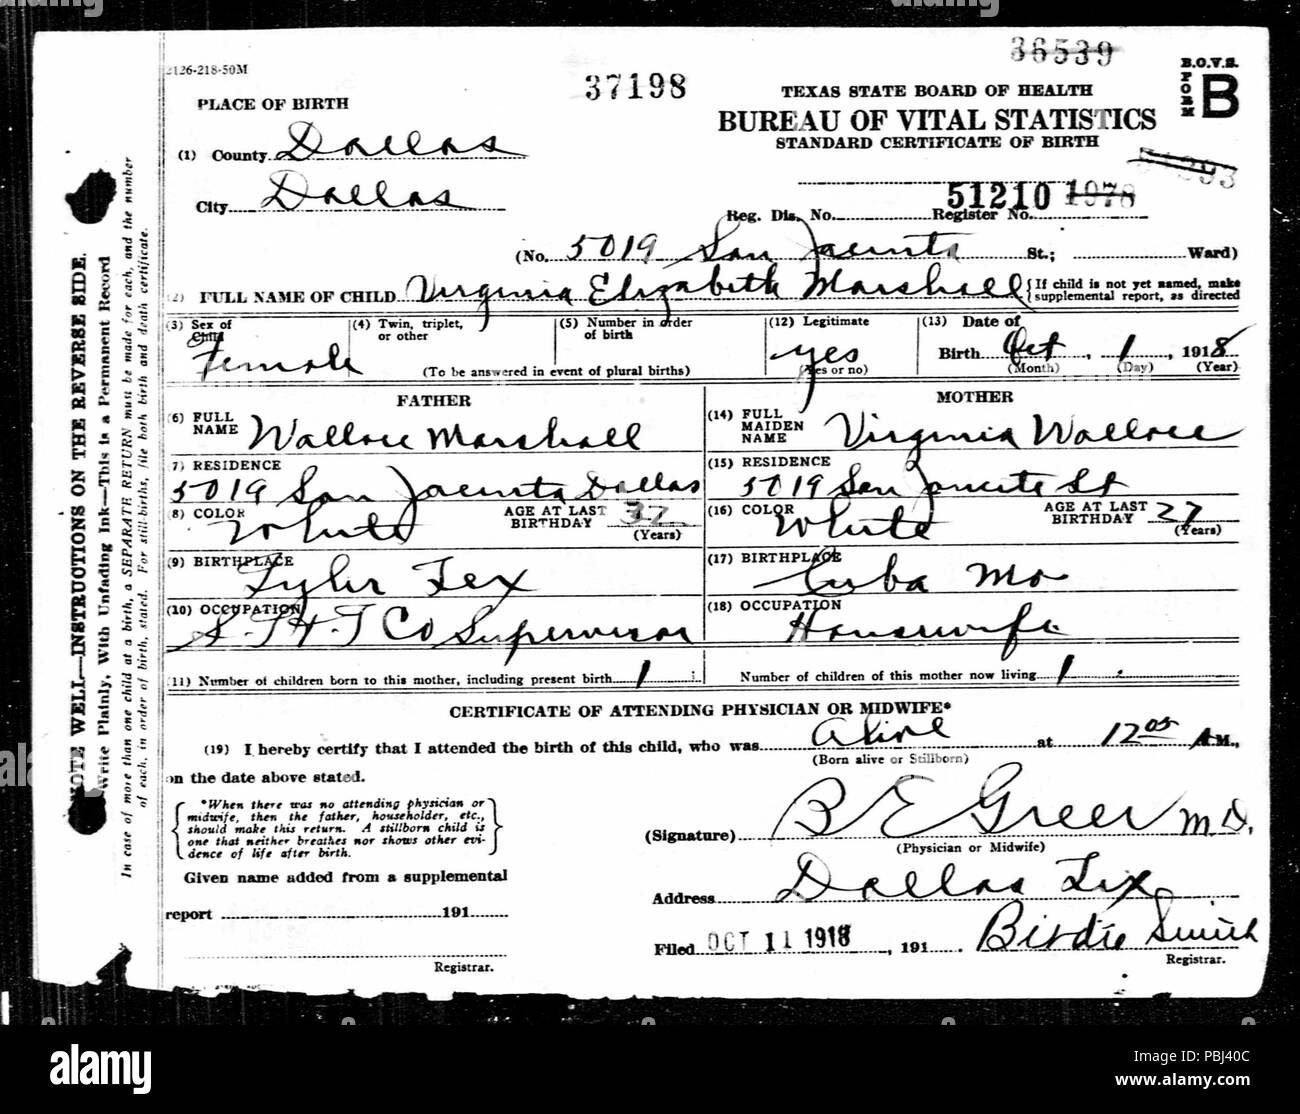 36539
2126-218-50M
37198
B.O.V.S.
FORM
B
PLACE OF BIRTH
TEXAS STATE BOARD OF HEALTH
BUREAU OF VITAL STATISTICS
STANDARD CERTIFICATE OF BIRTH
(1) County Dallas
City Dallas
51210 1978
Reg. Dis. No. Register No.
(No. 5019 San Jacinto St.; Ward)
(2) FULL NAME OF CHILD Virginia Elizabeth Marshall {If child is not yet named, make
supplemental report, as directed
(3) Sex of Child Female
(4) Twin, triplet, or other
(5) Number in order of birth
(To be answered in event of plural births)
(12) Legitimate yes
(Yes or no)
(13) Date of
Birth Oct, 1, 1918
(Month) (Day) (Year)
FATHER
MOTHER
(6) FULL NAME Wallace Marshall
(14) FULL MAIDEN NAME Virginia Wallace
(7) RESIDENCE
5019 San Jacinto Dallas
(15) RESIDENCE
5019 San Jacinto St
(8) COLOR White
AGE AT LAST BIRTHDAY 32
(Years)
(16) COLOR White
AGE AT LAST BIRTHDAY 27
(Years)
(9) BIRTHPLACE
Tyler Tex
(17) BIRTHPLACE
Cuba Mo
(10) OCCUPATION
S. T & T Co Supervisor
(18) OCCUPATION
Housewife
(11) Number of children born to this mother, including present birth 1
Number of children of this mother now living 1
CERTIFICATE OF ATTENDING PHYSICIAN OR MIDWIFE*
(19) I hereby certify that I attended the birth of this child, who was Alive at 12 05 A.M.,
(Born alive or Stillborn)
on the date above stated.
*When there was no attending physician or
midwife, then the father, householder, etc.,
should make this return. A stillborn child is
one that neither breathes nor shows other evi-
dence of life after birth.
(Signature) B E Greer M.D.
(Physician or Midwife)
Given name added from a supplemental
report 191
Address Dallas Tex
Filed OCT 11 1918, 191 Birdie Smith
Registrar.
Registrar.
NOTE WELL—INSTRUCTIONS ON THE REVERSE SIDE.
Write Plainly, With Unfading Ink—This is a Permanent Record
In case of more than one child at a birth, a SEPARATE RETURN must be made for each, and the number
of each, in order of birth, stated. For still-births, file both birth and death certificate.
alamy
Image ID: PBJ40C
www.alamy.com